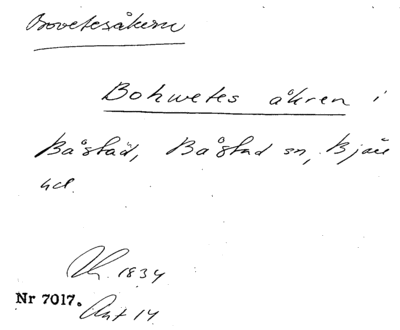 Bovetesåkern
Bohwetes åkren i
Båstad, Båstad sn, Bjäre
hd.
1834
Nr 7017.
Akt 14